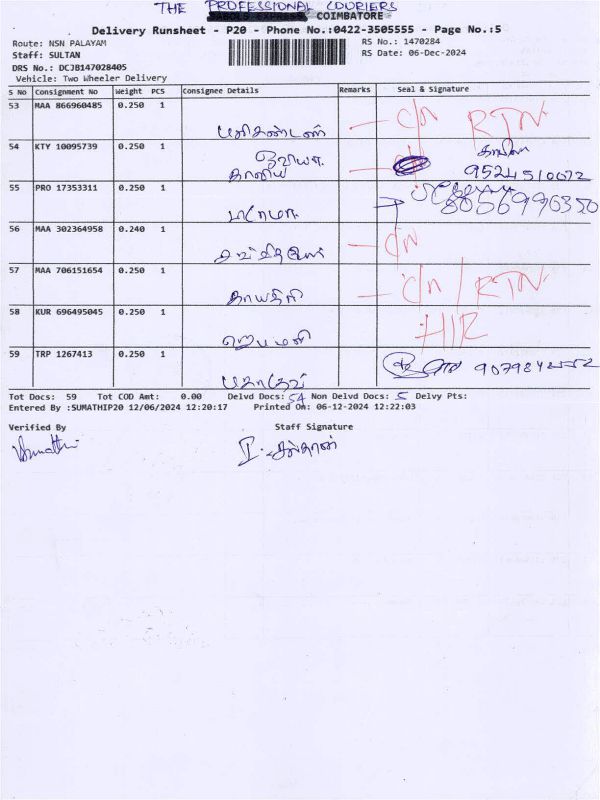 THE PROFESSIONAL COURIERS
COIMBATORE
Delivery Runsheet - P20 - Phone No.:0422-3505555 - Page No.:5
Route: NSN PALAYAM RS No.: 1470284
Staff: SULTAN RS Date: 06-Dec-2024
DRS No.: DCJB147028405
Vehicle: Two Wheeler Delivery
S No Consignment No Weight PCS Consignee Details Remarks Seal & Signature
53 MAA 866960485 0.250 1
மணிகண்டன் C/N RTN
54 KTY 10095739 0.250 1
9524510072
55 PRO 17353311 0.250 1
8056990350
56 MAA 302364958 0.240 1
C/N
57 MAA 706151654 0.250 1
காயத்ரி C/N / RTN
58 KUR 696495045 0.250 1
ஜெபமணி
59 TRP 1267413 0.250 1
மகாதேவ்
Tot Docs: 59 Tot COD Amt: 0.00 Delvd Docs: 54 Non Delvd Docs: 5 Delvy Pts:
Entered By :SUMATHIP20 12/06/2024 12:20:17 Printed On: 06-12-2024 12:22:03
Verified By Staff Signature
Sumathi I. சுல்தான்